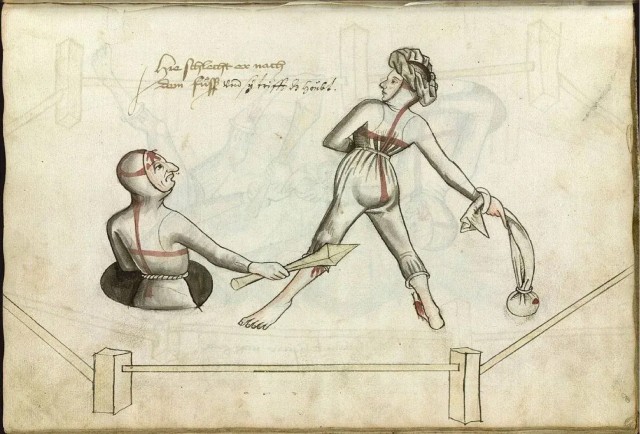 Hie schlecht er nach
dem fuß und sy trifft ds houbt.